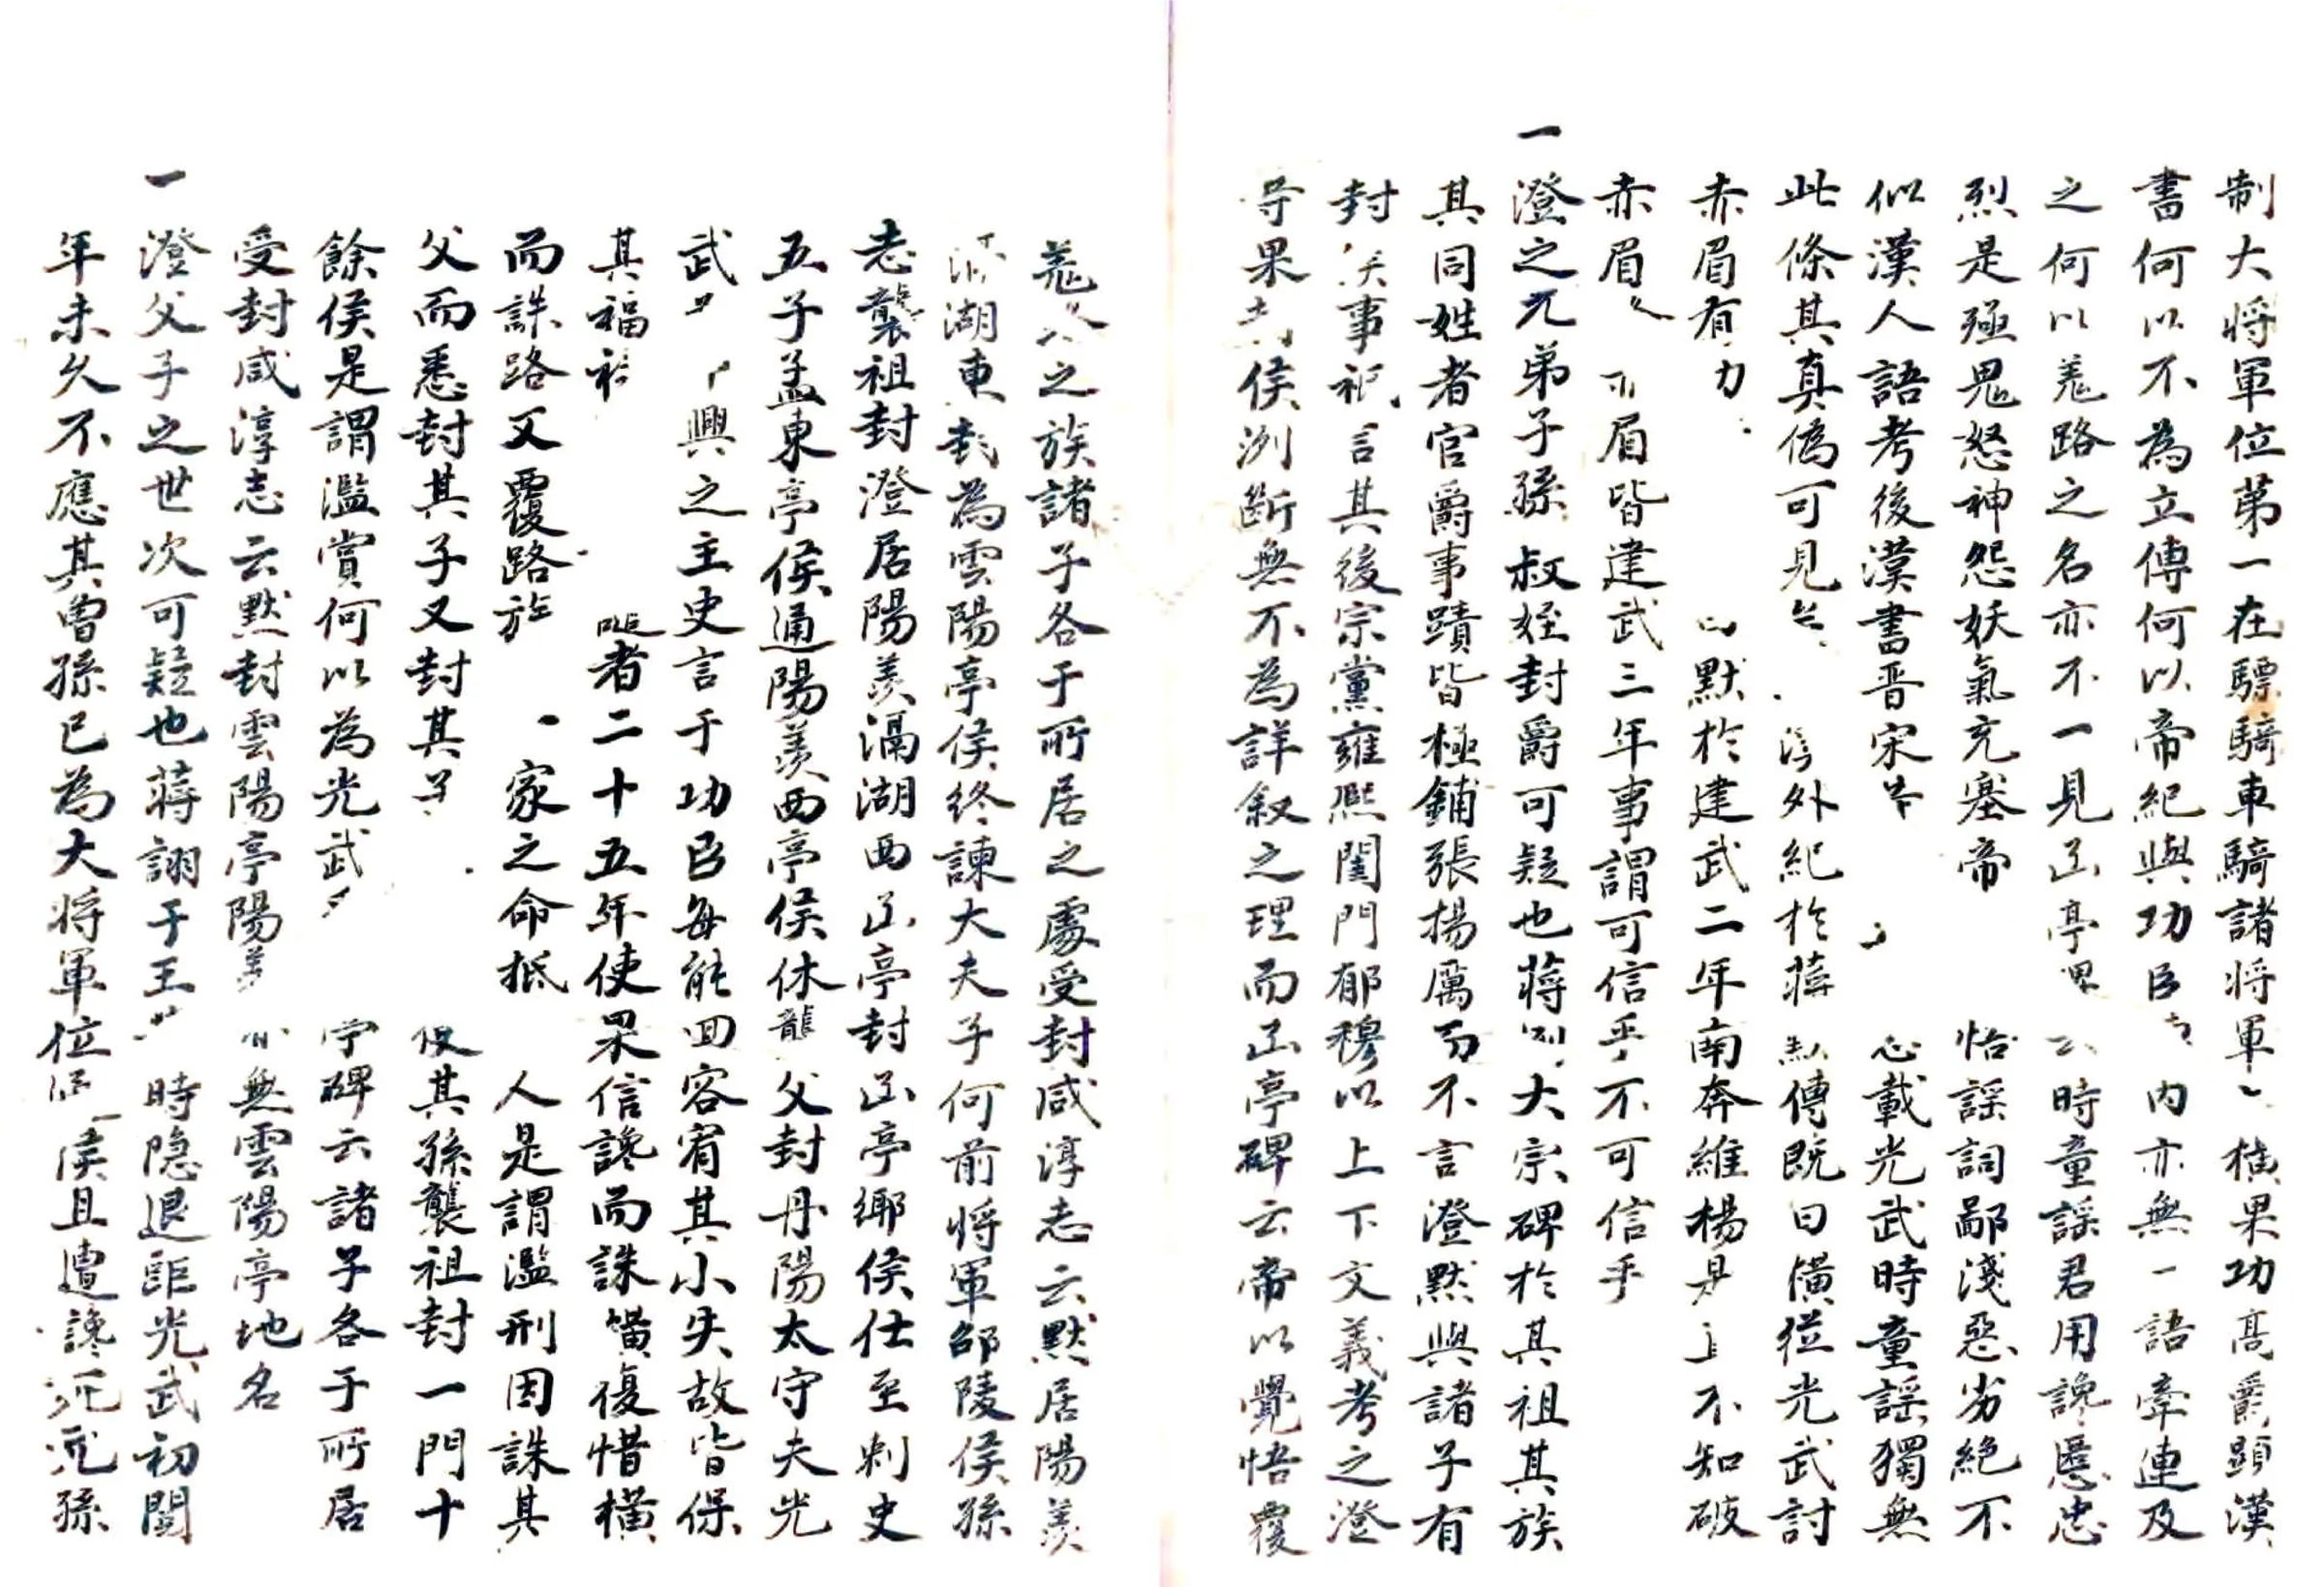 制大将軍位第一在驃騎車騎諸将軍橫果功高爵顕漢
書何以不為立傳何以帝紀與功臣内亦無一語牽連及
之何以羗路之名亦不一見亟亭時童謡君用讒慝忠
烈是殛鬼怒神怨妖氣充塞帝怡謡詞鄙淺惡劣絕不
似漢人語考後漢書晋宋載光武時童謡獨無
此條其真偽可見外紀於蒋傳既曰橫從光武討
赤眉有力默於建武二年南奔維楊不知破
赤眉眉皆建武三年事謂可信乎不可信乎
一澄之兄弟子孫叔姪封爵可疑也蒋大宗碑於其祖其族
其同姓者官爵事蹟皆極鋪張揚厲而不言澄默與諸子有
封事言其後宗黨雍熙閨門郁穆以上下文義考之澄
等果侯洌斷無不為詳叙之理而亟亭碑云帝以覺悟覆
羗之族諸子各于所居之處受封咸淳志云默居陽羨
湖東封為雲陽亭侯終諫大夫子何前将軍邵陵侯孫
志襲祖封澄居陽羨滆湖西亟亭封亟亭鄉侯仕至刺史
五子孟東亭侯通陽羨西亭侯休龍父封丹陽太守夫光
武興之主史言于功臣每能回容宥其小失故皆保
其福者二十五年使果信讒而誅橫復惜橫
而誅路又覆路族家之命抵人是謂濫刑因誅其
父而悉封其子又封其其孫襲祖封一門十
餘侯是謂濫賞何以為光武碑云諸子各于所居
受封咸淳志云默封雲陽亭陽無雲陽亭地名
一澄父子之世次可疑也蒋詡于王時隐退距光武初閱
年未久不應其曾孫已為大将軍位侯且遭讒死孫